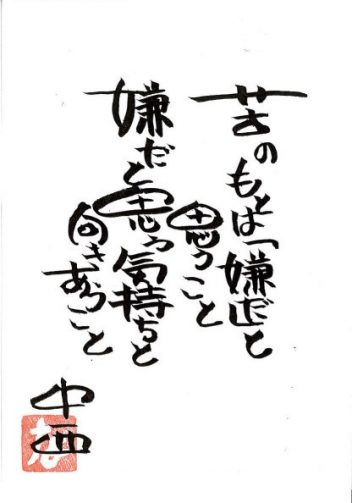 苦のもとは「嫌だ」と
思うこと
嫌だと思う気持ちと
向きあうこと
中西